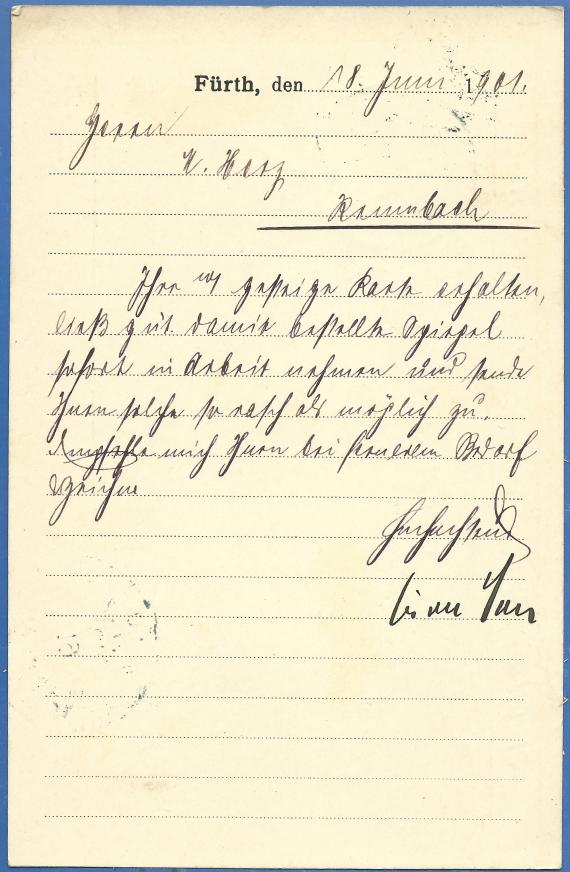 Fürth, den 18. Juni 1901.
Herrn
K. Herz
Rennbach
Ihre gestrige Karte erhalten,
ließ gut damit bestellte Spiegel
sofort in Arbeit nehmen und sende
Ihnen solche so rasch als möglich zu.
Empfehle mich Ihnen bei fernerem Bedarf
Zeichne
Hochachtend